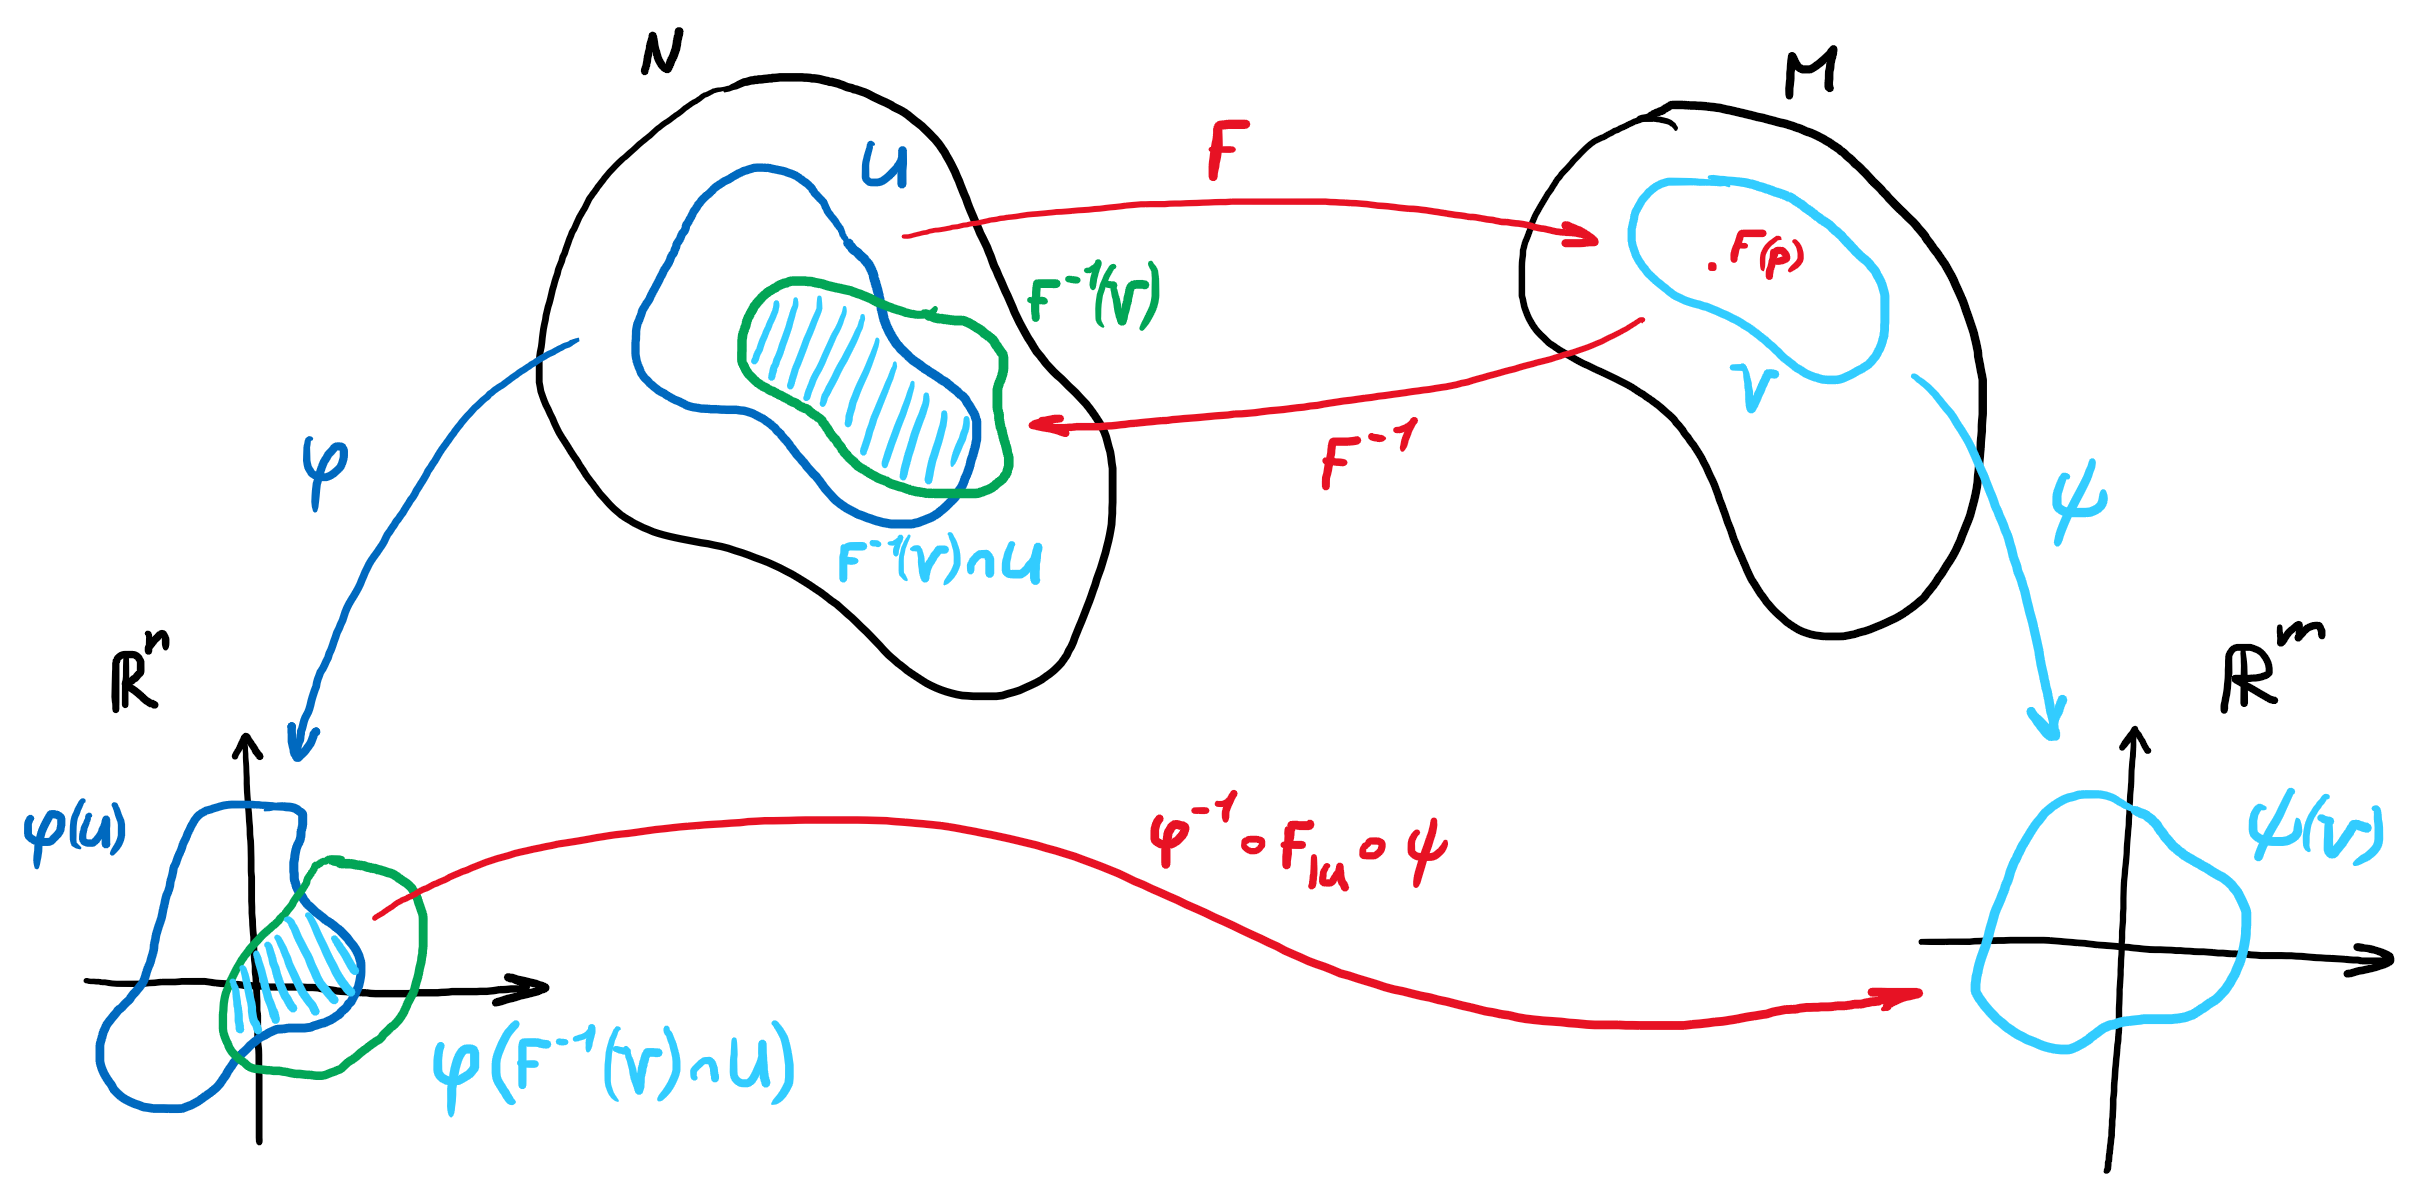 N
M
U
F
F(p)
F⁻¹(V)
V
F⁻¹
φ
ψ
F⁻¹(V)∩U
ℝⁿ
ℝᵐ
φ(U)
φ⁻¹∘F|U∘ψ
ψ(V)
φ(F⁻¹(V)∩U)